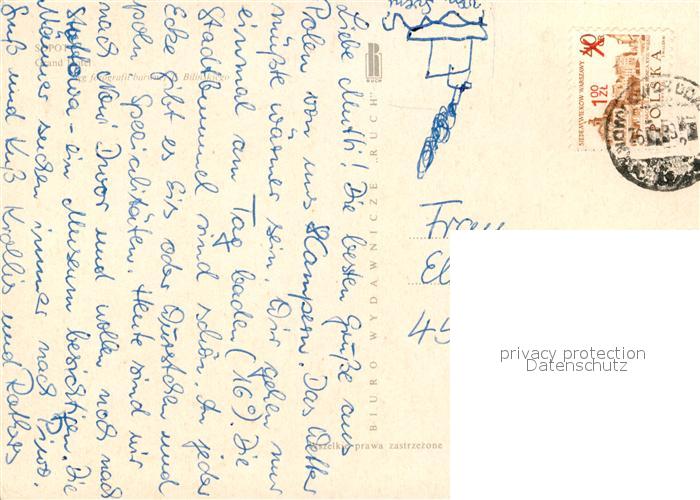 SOPOT
Grand Hotel
fotografii barwnej
BIURO WYDAWNICZE "RUCH"
Wszelkie prawa zastrzeżone
Liebe Mutti! Die besten Grüße aus
Polen von uns Stampern. Das Wetter
müßte wärmer sein. Wir gehen nur
einmal am Tag baden (16°). Die
Stadtbummel sind schön. An jeder
Ecke gibt es Eis oder Würstchen und
poln. Spezialitäten. Heute sind wir
nach Nowi Dwor und wollen noch nach
Stuttowa - ein Museum besichtigen. Die
Männer suchen immer nach Piwo.
Gruß und Kuß
und
Frau
El
45
40
1,00 ZŁ
SIEDEM WIEKÓW WARSZAWY
POLSKA
privacy protection
Datenschutz